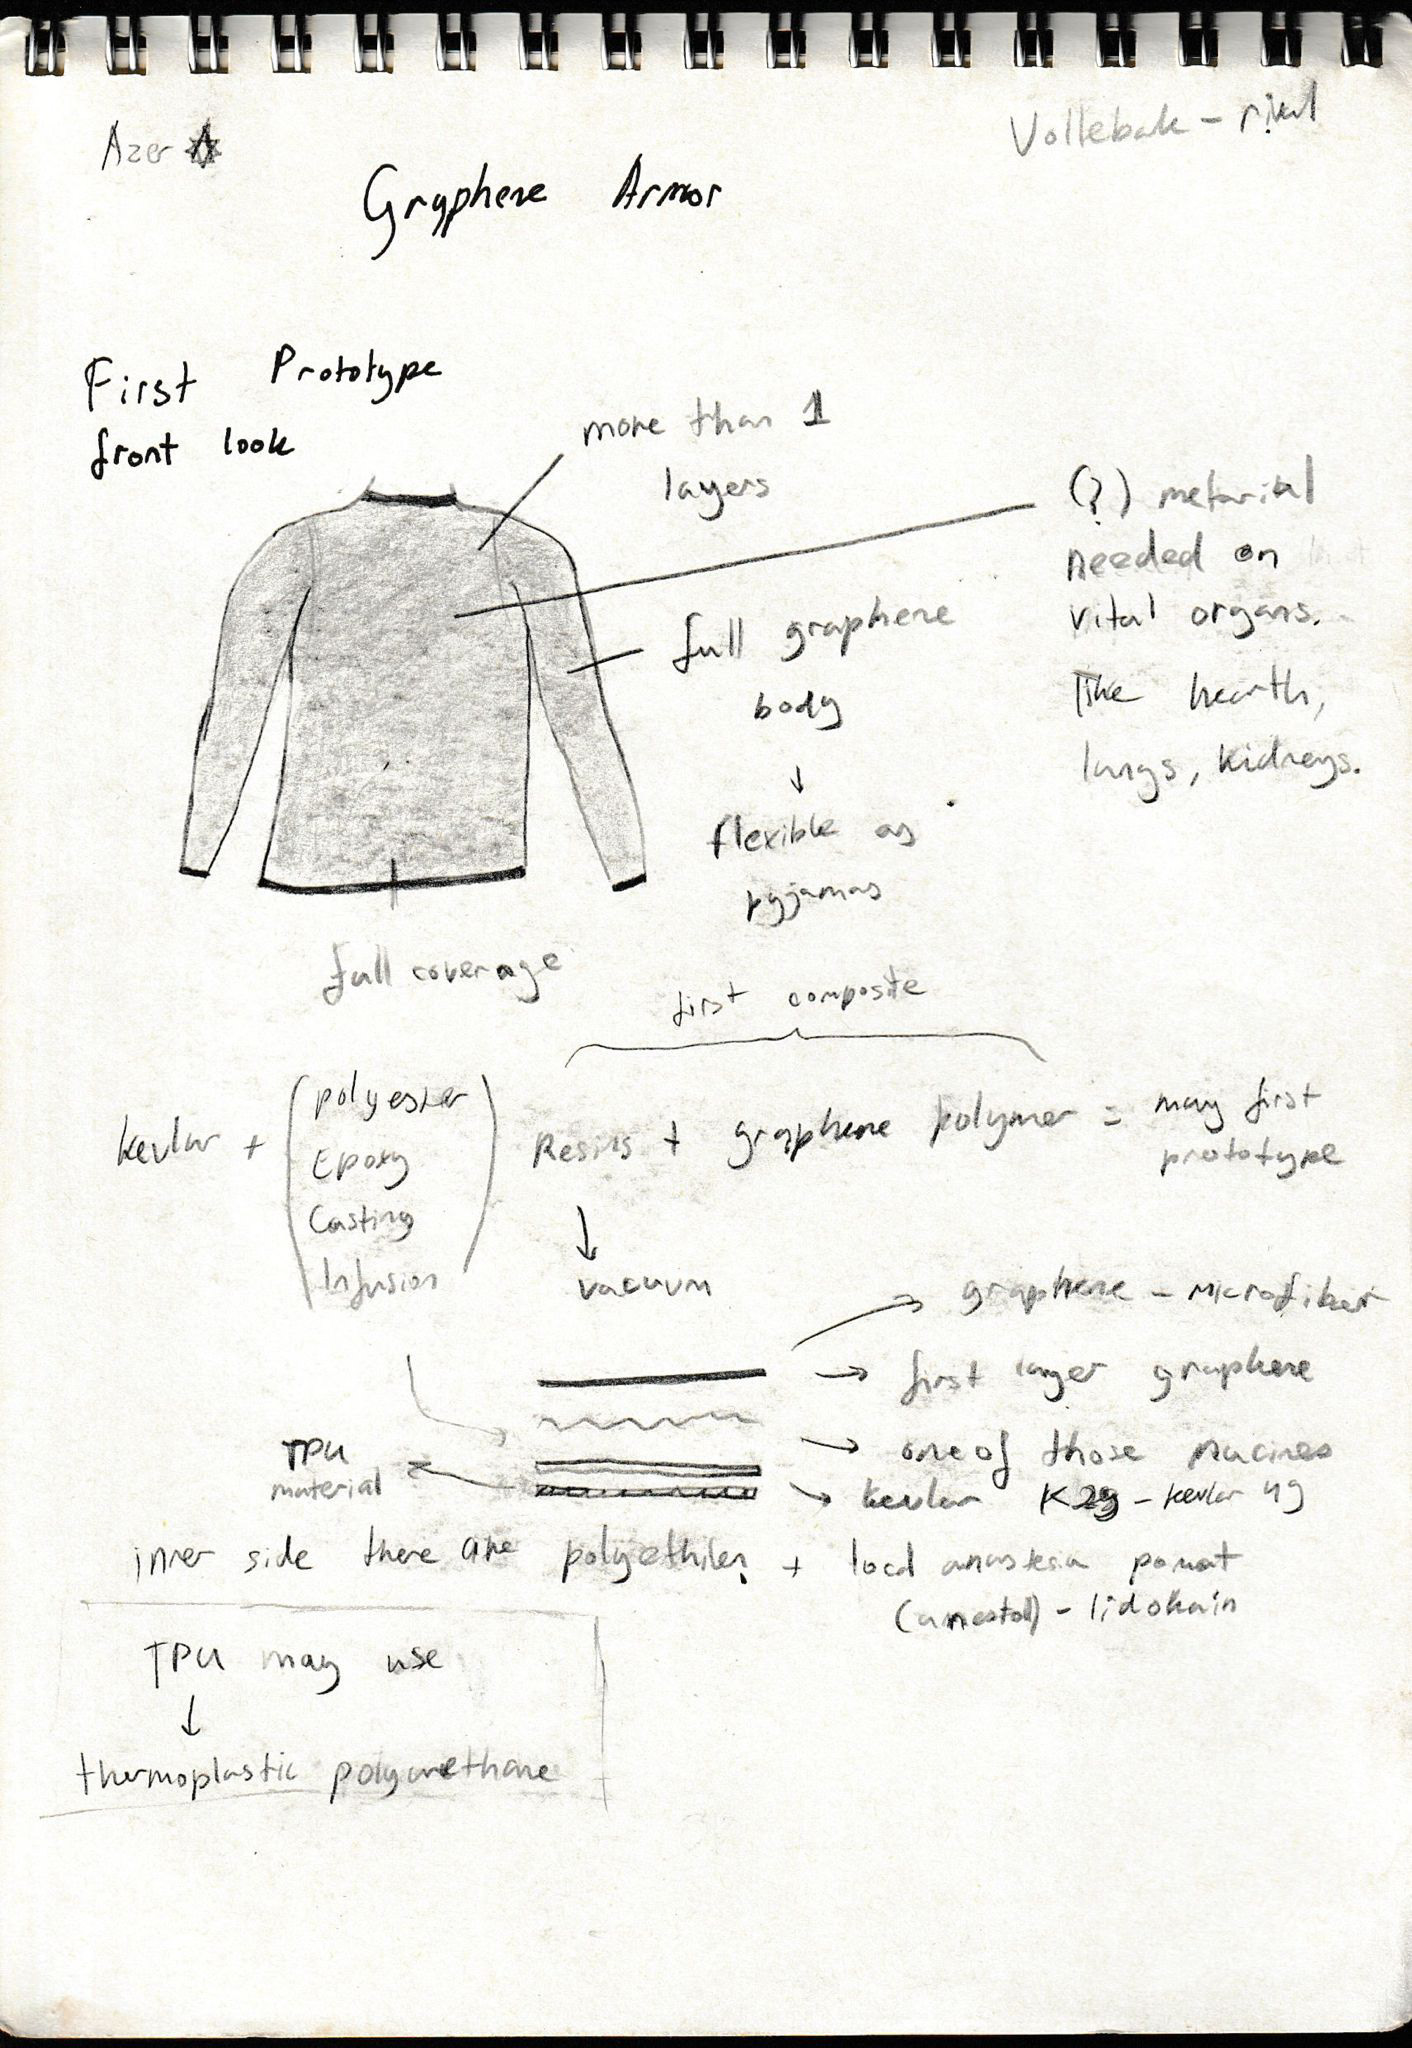 Azer
Vollebak - rival
Graphene Armor
First Prototype
front look
more than 1
layers
(?) meterial
needed on
vital organs.
like hearth,
lungs, kidneys.
full graphene
body
flexible as
pyjamas
full coverage
first composite
kevlar + (polyester
Epoxy
Casting
Infusion)
Resins + graphene polymer = may first
prototype
vacuum
graphene - microfiber
first layer graphene
one of those
TPU
material
kevlar K29 - kevlar 49
inner side there are polyethilen + local anastesia pomat
(anestol) - lidokain
TPU may use
thermoplastic polyurethane